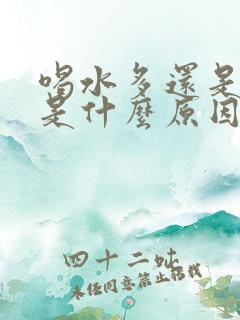 喝水多還是
是什麼原因
四十二
未經同意禁止轉載